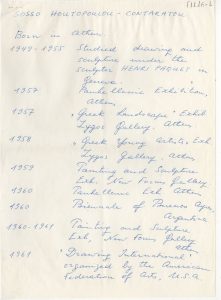 SOSSO HOUTOPOULOU - CONTARATOU
Born in Athens
1949 - 1955 Studied drawing and
sculpture under the
sculptor HENRI PAQUET in
Geneva.
1957 Panhellenic Exhibition,
Athens
1957 "Greek Landscape" Exhib.
Zygos Gallery. Athens
1958 "Greek Young Artists, Exh
Zygos Gallery. Athens
1959 Painting and Sculpture
Exh. New Forms Gallery
1960 Panhellenic Exh. Athens
1960 Biennale of Buenos Ayres,
Argentina
1960-1941 Painting and Sculpture
Exh. New Forms Gallery
1961 "Drawing International"
organized by the American
Federation of Arts, U.S.A